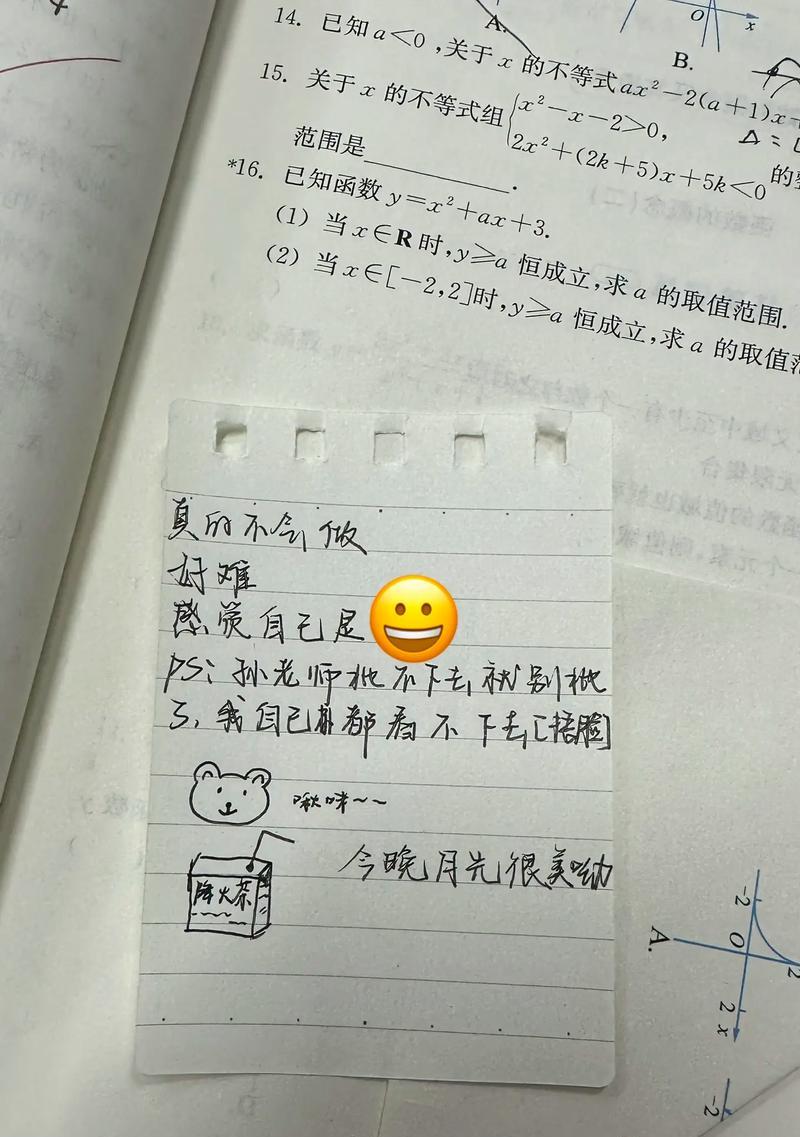 A.
O
x
B.
14. 已知a<0,关于x的不等式ax²-2(a+1)x+
15. 关于x的不等式组{x²-x-2>0,
2x²+(2k+5)x+5k<0
的整
Δ=
范围是________.
*16. 已知函数y=x²+ax+3.
(1) 当x∈R时,y≥a恒成立,求a的取值范围.
(2) 当x∈[-2,2]时,y≥a恒成立,求a的取值范
真的不会做
好难
感觉自己是
PS:孙老师批不下去就别批
了,我自己都看不下去[捂脸]
啾咪~~
降火茶
今晚月光很美呦
A.
-2
O
2
2
x
-2